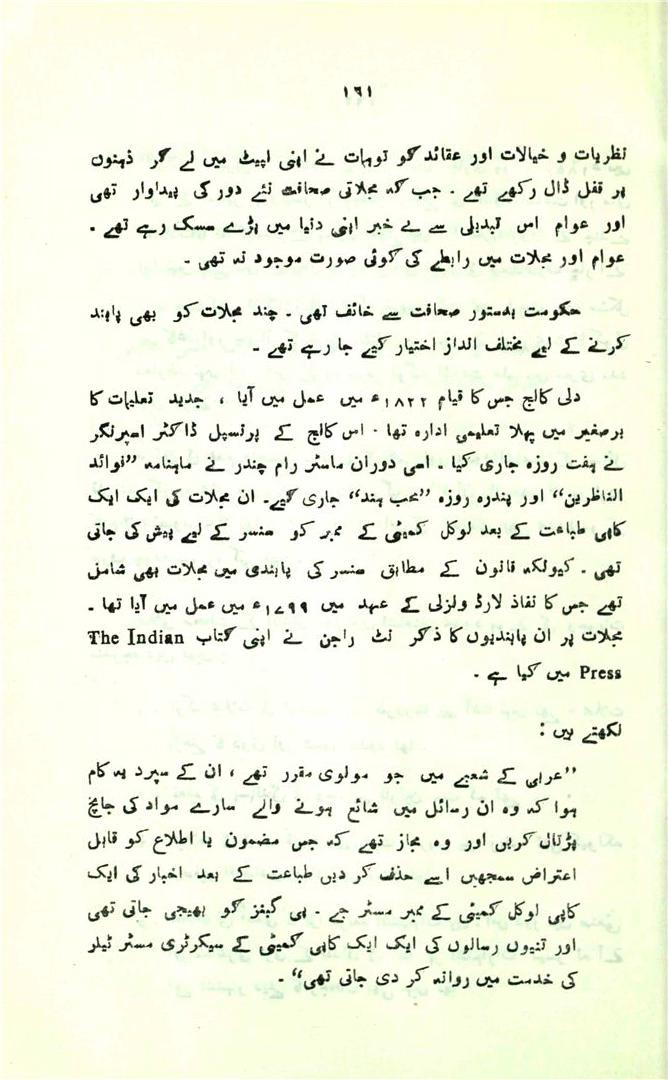 ۱۶۱
نظریات و خیالات اور عقائد کو توہمات نے اپنی لپیٹ میں لے کر ذہنوں
پر قفل ڈال رکھے تھے ۔ جب کہ مجلاتی صحافت نئے دور کی پیداوار تھی
اور عوام اس تبدیلی سے بے خبر اپنی دنیا میں پڑے سسک رہے تھے ۔
عوام اور مجلات میں رابطے کی کوئی صورت موجود نہ تھی ۔
حکومت بدستور صحافت سے خائف تھی ۔ چند مجلات کو بھی پابند
کرنے کے لیے مختلف انداز اختیار کیے جا رہے تھے ۔
دلی کالج جس کا قیام ۱۸۲۲ء میں عمل میں آیا ، جدید تعلیمات کا
برصغیر میں پہلا تعلیمی ادارہ تھا ۔ اس کالج کے پرنسپل ڈاکٹر اسپرنگر
نے ہفت روزہ جاری کیا ۔ اسی دوران ماسٹر رام چندر نے ماہنامہ ”فوائد
الناظرین“ اور پندرہ روزہ ”محب ہند“ جاری کیے۔ ان مجلات کی ایک ایک
کاپی طباعت کے بعد لوکل کمیٹی کے ممبر کو سنسر کے لیے پیش کی جاتی
تھی ۔ کیونکہ قانون کے مطابق سنسر کی پابندی میں مجلات بھی شامل
تھے جس کا نفاذ لارڈ ولزلی کے عہد میں ۱۷۹۹ء میں عمل میں آیا تھا ۔
مجلات پر ان پابندیوں کا ذکر نٹ راجن نے اپنی کتاب The Indian
Press میں کیا ہے ۔
لکھتے ہیں :
”عربی کے شعبے میں جو مولوی مقرر تھے ، ان کے سپرد یہ کام
ہوا کہ وہ ان رسائل میں شائع ہونے والے سارے مواد کی جانچ
پڑتال کریں اور وہ مجاز تھے کہ جس مضمون یا اطلاع کو قابل
اعتراض سمجھیں اسے حذف کر دیں طباعت کے بعد اخبار کی ایک
کاپی لوکل کمیٹی کے ممبر مسٹر جے ۔ پی گبنز کو بھیجی جاتی تھی
اور تینوں رسالوں کی ایک ایک کاپی کمیٹی کے سیکرٹری مسٹر ٹیلر
کی خدمت میں روانہ کر دی جاتی تھی“ ۔